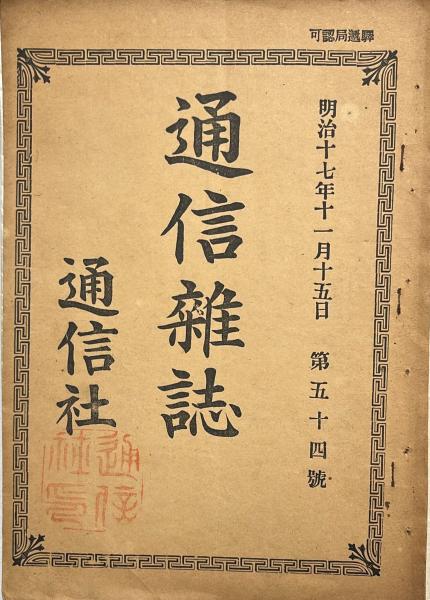 驛遞局認可
明治十七年十一月十五日 第五十四號
通信雜誌
通信社
通信社印